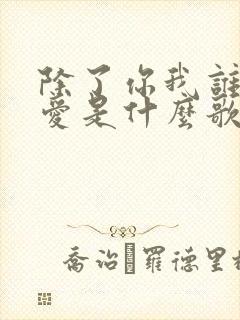 除了你我誰
愛是什麼歌
喬治 羅德里